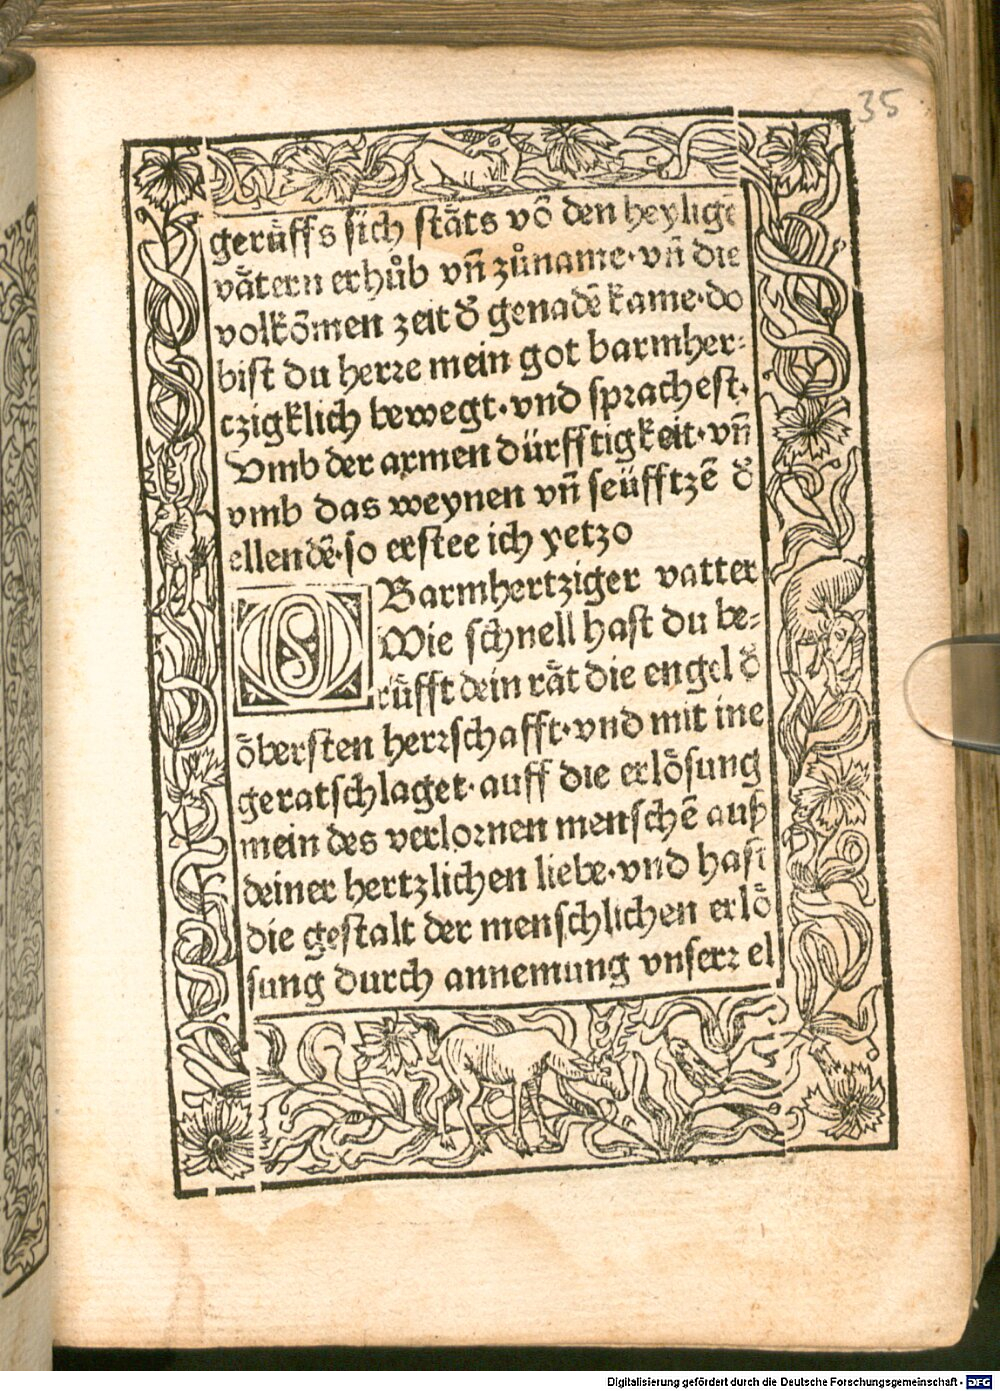 35
gerüffs sich stäts võ den heylige
vätern erhůb vñ zůname·vñ die
volkõmen zeit d̕ genadẽ kame·do
bist du herre mein got barmher⸗
czigklich bewegt·vnd sprachest·
Vmb der armen dürfftigkeit·vñ
vmb das weynen vñ seüfftzẽ d̕
ellendẽ·so erstee ich yetzo
O Barmhertziger vatter
Wie schnell hast du be⸗
rüfft dein rät die engel d̕
öbersten herrschafft·vnd mit ine
geratschlaget·auff die erlösung
mein des verlornen menschẽ auß
deiner hertzlichen liebe·vnd hast
die gestalt der menschlichen erlö
sung durch annemung vnserr el
Digitalisierung gefördert durch die Deutsche Forschungsgemeinschaft - DFG